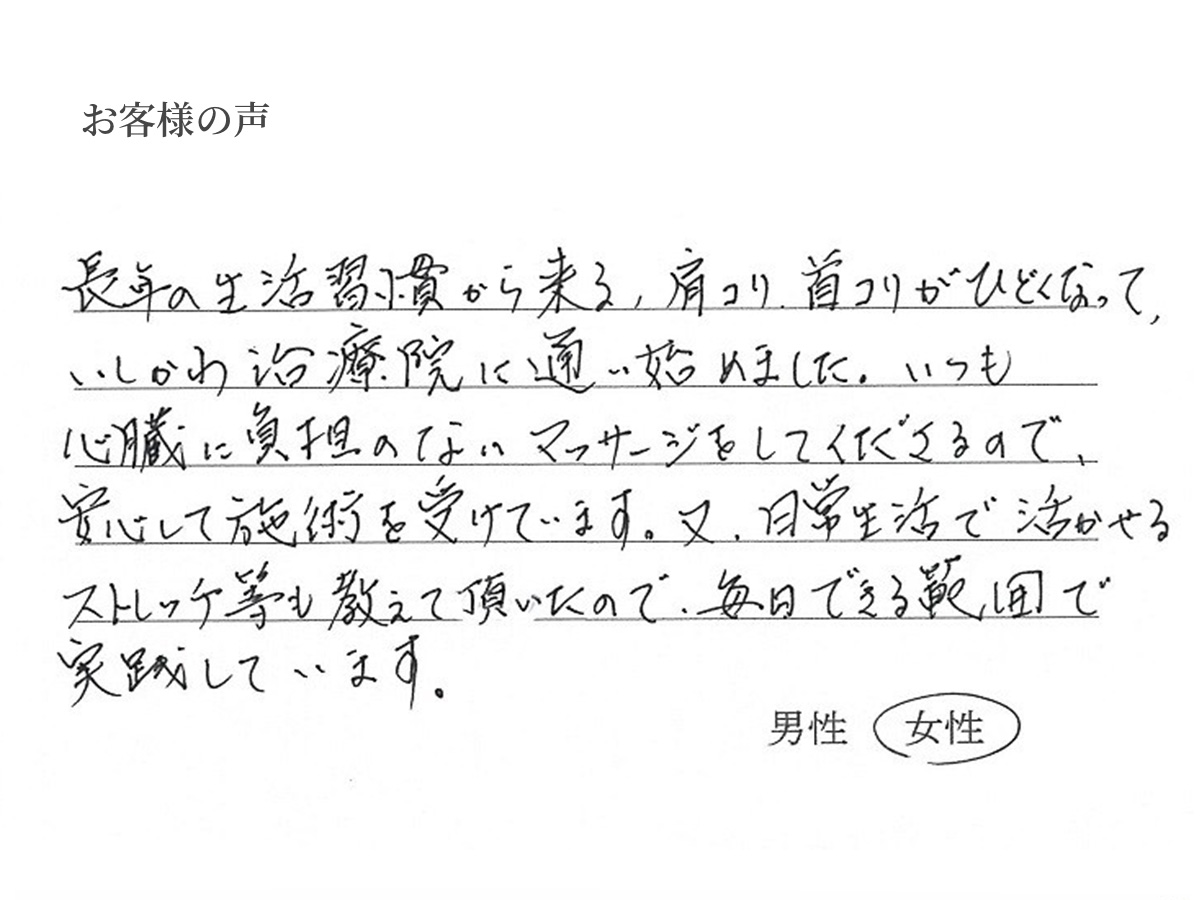 お客様の声
長年の生活習慣から来る、肩コリ、首コリがひどくなって、
いしかわ治療院に通い始めました。いつも
心臓に負担のないマッサージをしてくださるので、
安心して施術を受けています。又、日常生活で活かせる
ストレッチ等も教えて頂いたので、毎日できる範囲で
実践しています。
男性 女性